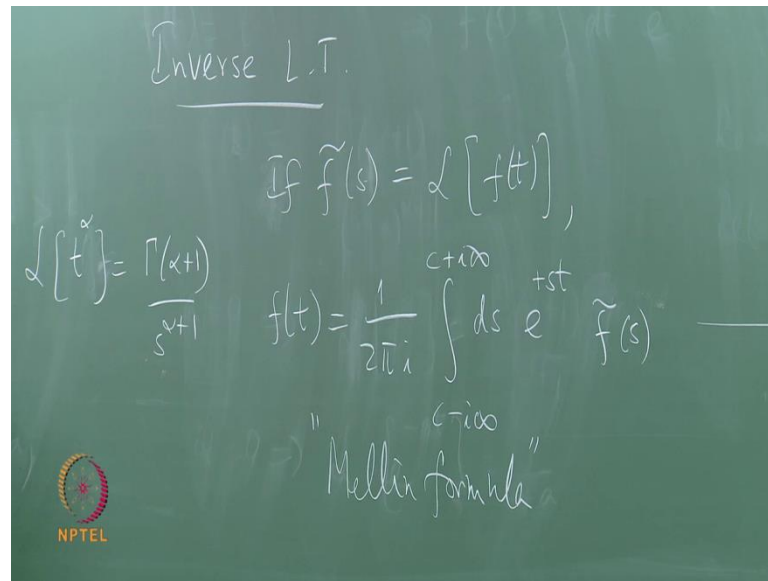 Inverse L.T.
If f̃(s) = ℒ[f(t)],
ℒ[t^α] = Γ(α+1) / s^(α+1)
f(t) = 1/(2πi) ∫_{c-i∞}^{c+i∞} ds e^{+st} f̃(s)
"Mellin formula"
NPTEL